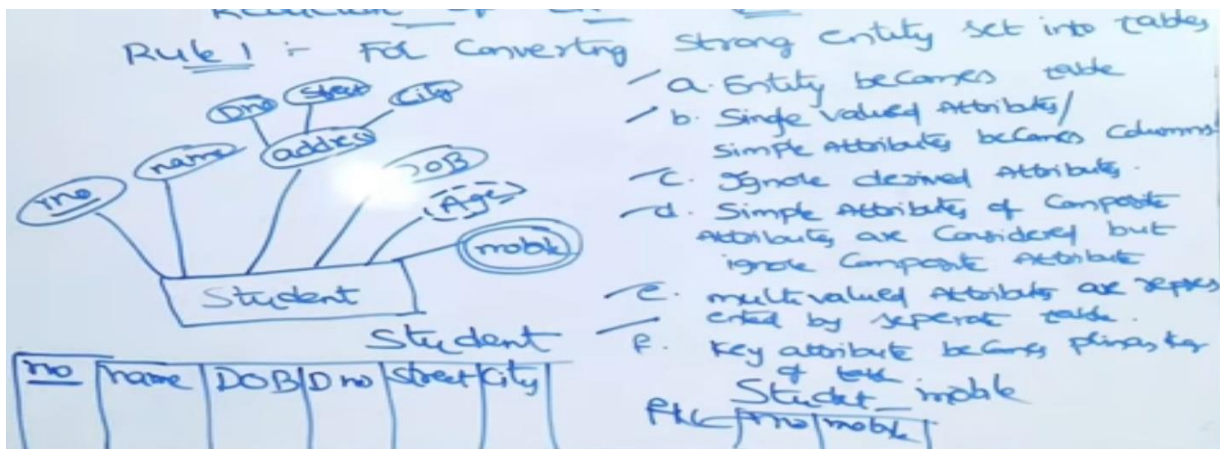 Rule 1 :- For Converting Strong entity set into tables
a. Entity becomes table
b. Single valued Attributes/
Simple Attributes becomes Columns
c. Ignore derived Attributes.
d. Simple Attributes of Composite
Attributes are Considered but
ignore Composite Attribute
e. multivalued Attributes are repres
ented by seperate table.
f. Key attribute becomes primary key
of
Dno
Street
City
name
address
rno
Age
mobile
Student
Student
no name DOB Dno Street City
Student_mobile
rno mobile